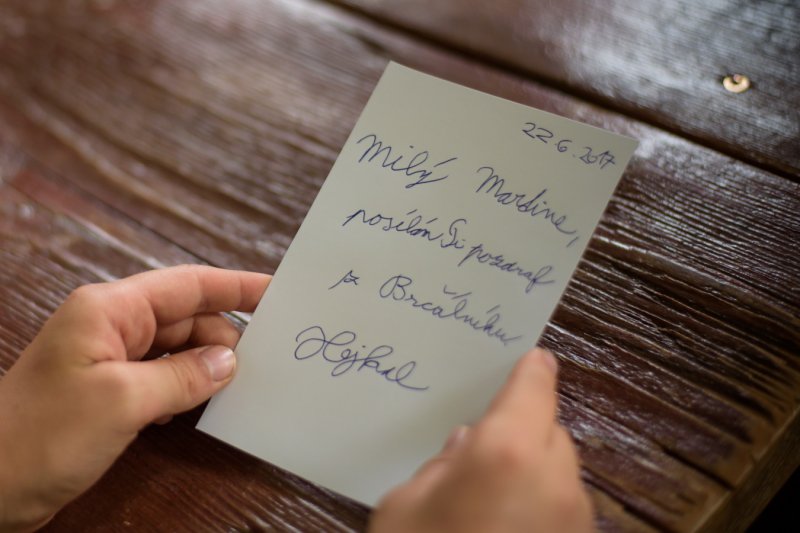 22.6.2017
Milý Martine,
posílám Ti pozdraf
z Brčálníku
Hejkal